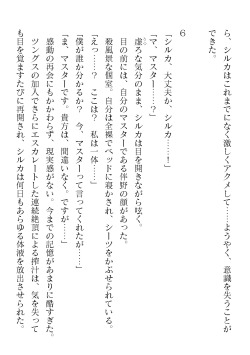 ら、シルカはこれまでになく激しくアクメして……ようやく、意識を失うことが
できた。
6
「シルカ、大丈夫か、シルカ……！」
「マ、マスター……？」
虚ろな気分のまま、シルカは目を開きながら呟く。
目の前には、自分のマスターである伴野の顔があった。
殺風景な個室。自分は全裸でベッドに寝かされ、シーツをかぶせられている。
「えっ……？　ここは？　私は一体……」
「僕が誰か分かるか？　今、マスターって言ってたが……」
「ま、マスターです。貴方は、間違いなく。ですが……」
感動の再会にもかかわらず、現実感がない。今までの記憶があまりに酷すぎた。
ツングスの加入でさらにエスカレートした連続絶頂による搾汁は、気を失って
も目を覚ますたびに再開され、シルカは何日もあらゆる体液を放出させられた。